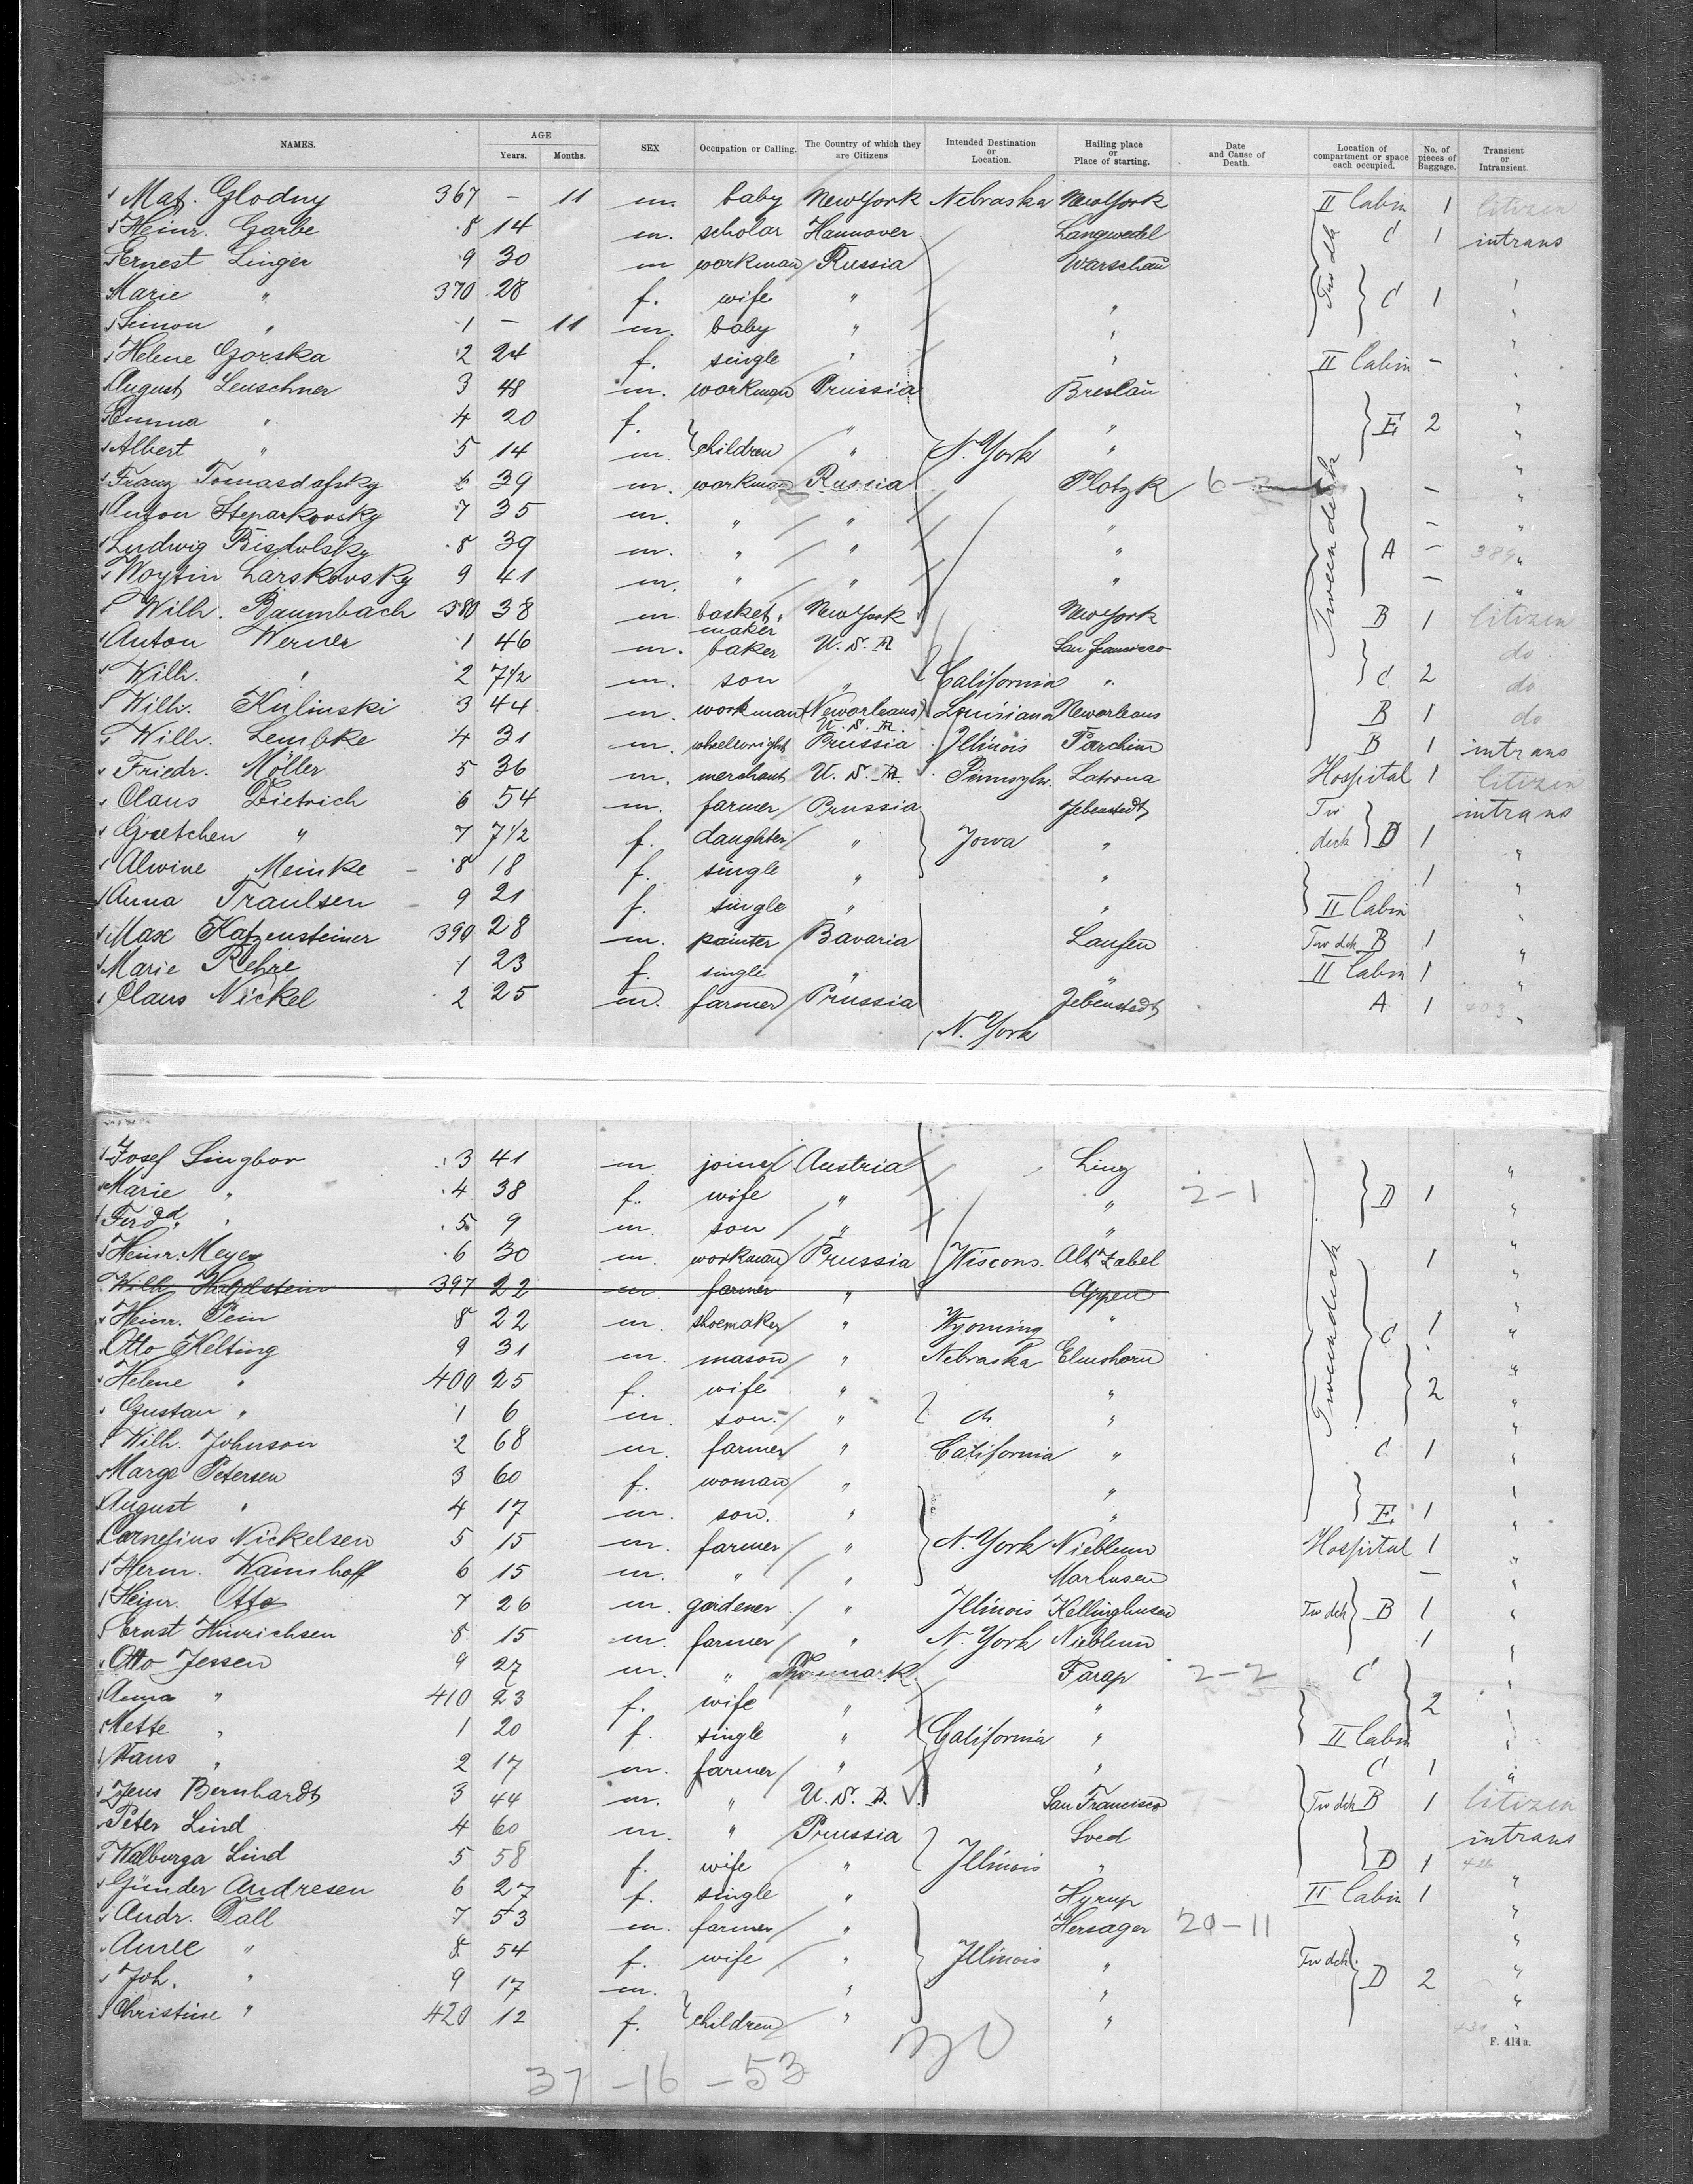 NAMES. AGE Years. Months. SEX Occupation or Calling. The Country of which they are Citizens Intended Destination or Location. Hailing place or Place of starting. Date and Cause of Death. Location of compartment or space each occupied. No. of pieces of Baggage. Transient or Intransient.
Mat. Glodny 367 – 11 m. baby New York Nebraska New York II Cabin 1 Citizen
Heinr. Garbe 8 14 m. scholar Hannover Langwedel C 1 intrans
Ernest Linger 9 30 m workman Russia Warschau Tw dk
Marie " 370 28 f. wife " " C 1 "
Simon " 1 – 11 m. baby " " "
Helene Gorska 2 24 f. single " " II Cabin – "
August Leuschner 3 48 m. workman Prussia Breslau "
Emma " 4 20 f. children " " E 2 "
Albert " 5 14 m. " N. York " "
Franz 6 39 m. workman Russia Plotzk – "
Anton 7 35 m. " " " – "
Ludwig 8 39 m. " " " A – 389 "
9 41 m. " " " – "
Wilh. Baumbach 380 38 m. basket maker New York New York B 1 Citizen
Anton Werner 1 46 m. baker U. S. A San Francisco do
Wilh. " 2 7 1/2 m. son " California " C 2 do
Wilh. Kulinski 3 44 m. workman (Neworleans) U. S. A. Louisiana Neworleans B 1 do
Wilh. Lembke 4 31 m. wheelwright Prussia Illinois Parchim B 1 intrans
Friedr. Möller 5 36 m. merchant U. S. A. Pennsylv. Latrona Hospital 1 Citizen
Claus Dietrich 6 54 m. farmer Prussia Jebenstedt Tw intrans
Gretchen " 7 7 1/2 f. daughter " Jowa " deck D 1 "
Alwine Meinke – 8 18 f. single " " 1 "
Anna Traulsen – 9 21 f. single " " II Cabin "
Max Katzensteiner 390 28 m. painter Bavaria Laufen Tw dck B 1 "
Marie Rehre 1 23 f. single " " II Cabin 1 "
Claus Nickel 2 25 m. farmer Prussia Jebenstedt A 1 403 "
N. York
Josef Lingbor 3 41 m joiner Austria Linz "
Marie " 4 38 f. wife " " 2-1 D 1 "
Ferd. " 5 9 m. son " " "
Heinr. Meyer 6 30 m. workman Prussia Wiscons. Alt Zabel 1 "
Wilh. 397 22 m. farmer " Appen
Heinr. Pein 8 22 m. shoemaker " Wyoming " C 1 "
Otto Kelting 9 31 m. mason " Nebraska Elmshorn "
Helene " 400 25 f. wife " " 2 "
Gustav " 1 6 m. son. " " "
Wilh. Johnson 2 68 m. farmer " California " C 1 "
Marge Petersen 3 60 f. woman " " "
August " 4 17 m. son. " " E 1 "
Cornelius Nickelsen 5 15 m. farmer " N. York Nieblum Hospital 1 "
Herm. Wamhoff 6 15 m. " " – "
Heinr. Otto 7 26 m. gardener " Illinois Kellinghusen Tw dck B 1 "
Ernst Hinrichsen 8 15 m. farmer " N. York Nieblum 1 "
Otto Jessen 9 27 m. " Denmark Farap 2-2 C "
Anna " 410 23 f. wife " " 2 "
Mette " 1 20 f. single " California " II Cabin "
Hans " 2 17 m. farmer " " C 1 "
Jens Bernhardt 3 44 m. " U. S. A. San Francisco Tw dck B 1 Citizen
Peter Lind 4 60 m. " Prussia intrans
Walburga Lind 5 58 f. wife " Illinois " D 1 426 "
Günder Andresen 6 27 f. single " Hyrup II Cabin 1 "
Andr. Dall 7 53 m. farmer " Hersager 20-11 "
8 54 f. wife " Illinois " Tw dck "
Joh. " 9 17 m. " " D 2 "
Christine " 420 12 f. children " " "
F. 414a.
37 – 16 – 53